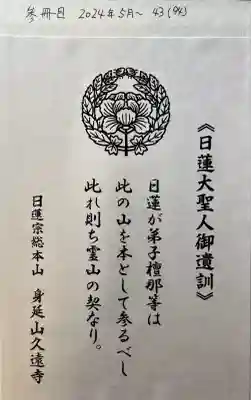 参冊目 2024年5月〜 43(94)
《日蓮大聖人御遺訓》
日蓮が弟子檀那等は
此の山を本として参るべし
此れ則ち霊山の契なり。
日蓮宗総本山 身延山久遠寺